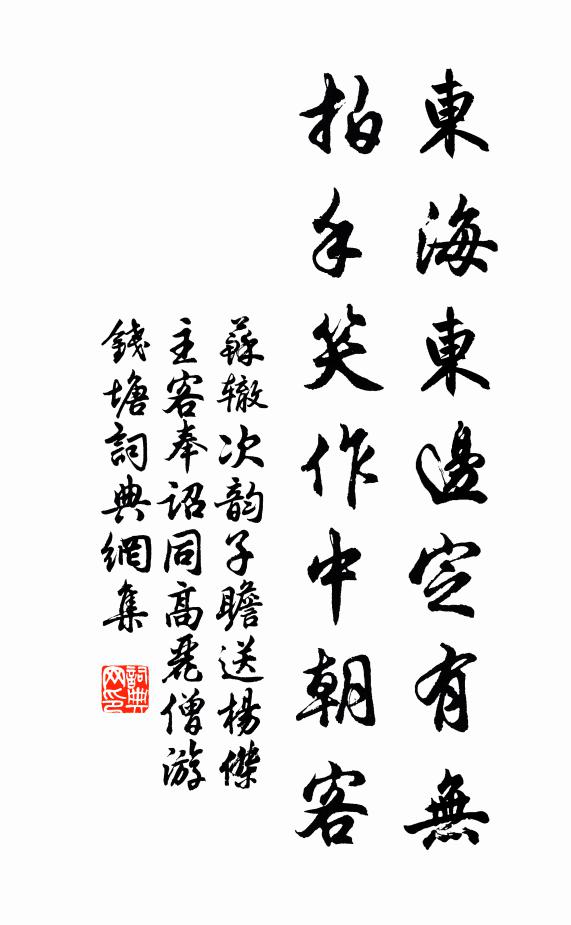 東海東邊定有無
拍手笑作中朝客
蘇辙次韵子瞻送楊傑
主客奉詔同高麗僧游
錢塘詞典網集
詞典
网印